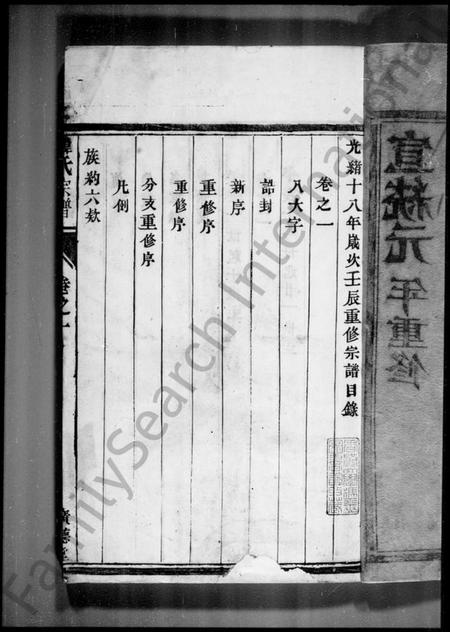 宣統元年重修
光緒十八年歲次壬辰重修宗譜目錄
卷之一
八大字
誥封
新序
重修序
重修序
分支重修序
凡例
族約六欵
氏宗譜
卷之一
FamilySearch International